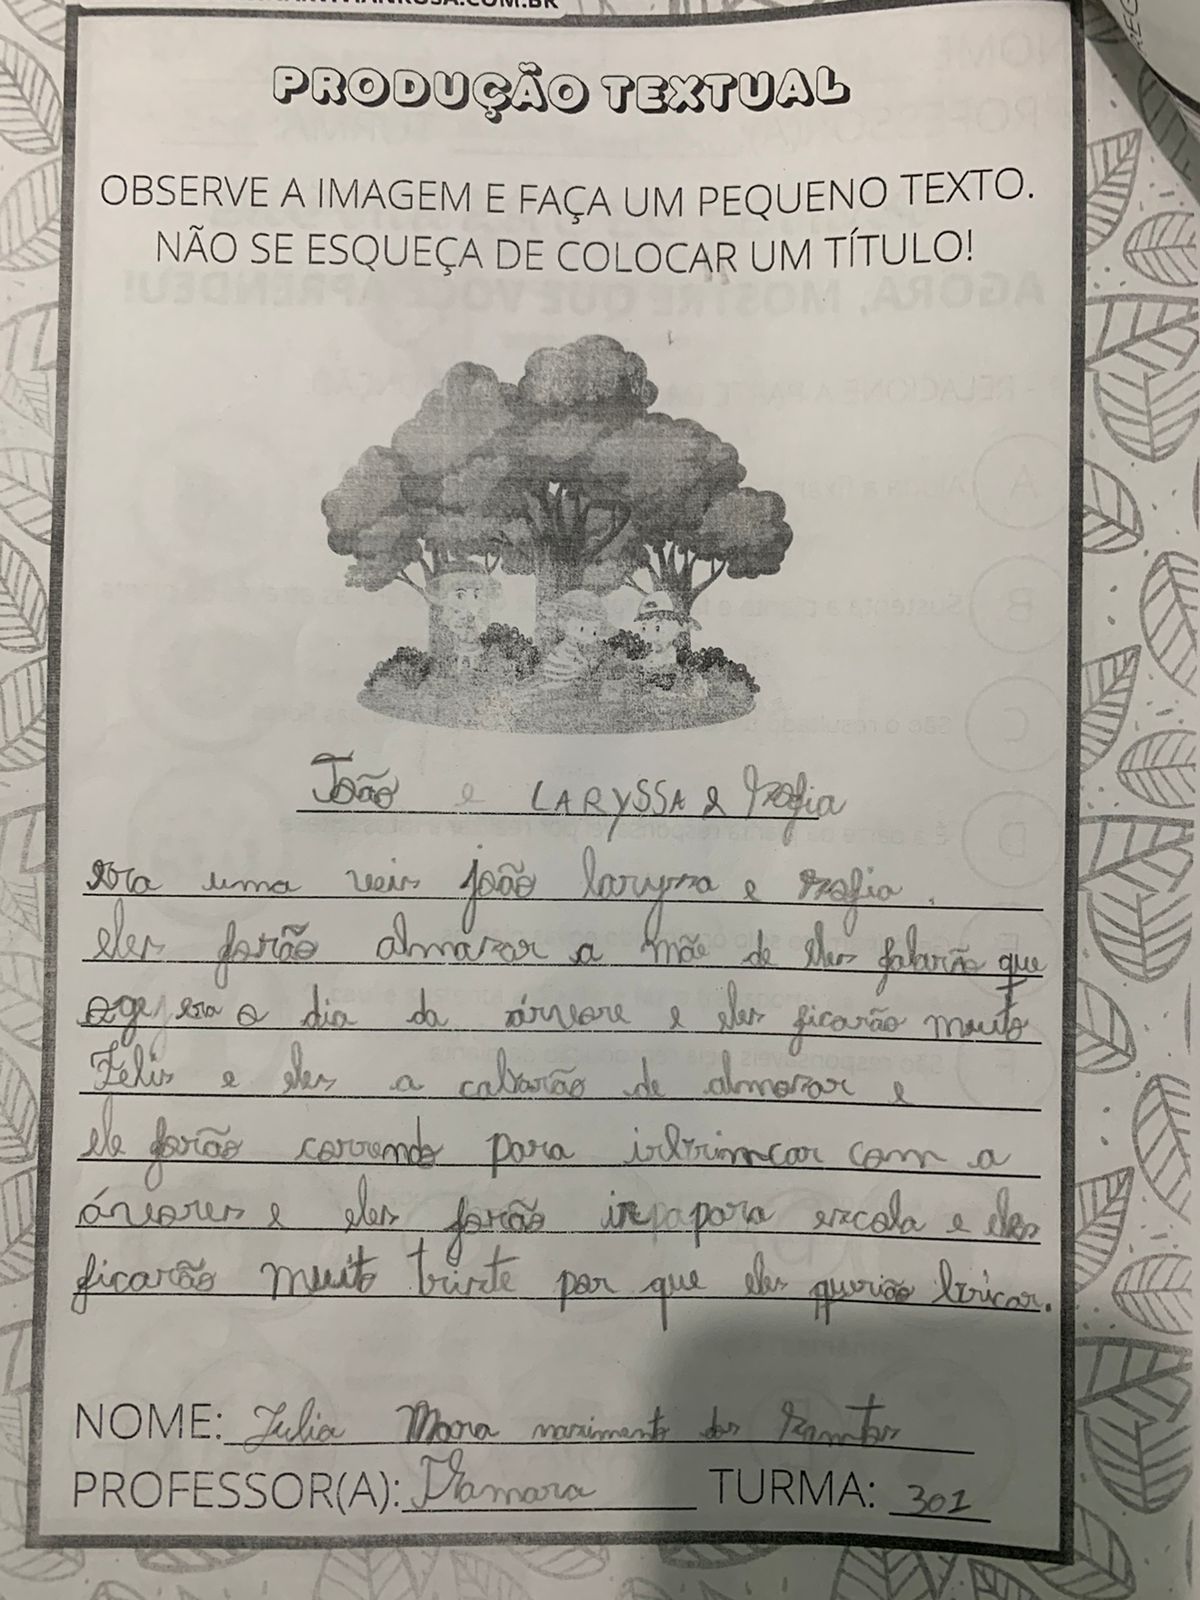 PRODUÇÃO TEXTUAL
OBSERVE A IMAGEM E FAÇA UM PEQUENO TEXTO.
NÃO SE ESQUEÇA DE COLOCAR UM TÍTULO!
João e LARYSSA e Sofia
era uma veis joão laryssa e sofia.
eles forão almosar a mãe de eles falarão que
oge era o dia da árvore e eles ficarão muito
Felis e eles a cabarão de almosar e
ele forão correndo para irbrimcar com a
árvores e eles forão ir para escola e eles
ficarão muito triste por que eles querião bricar.
NOME: Julia Mara nasimento dos Santos
PROFESSOR(A): TURMA: 301